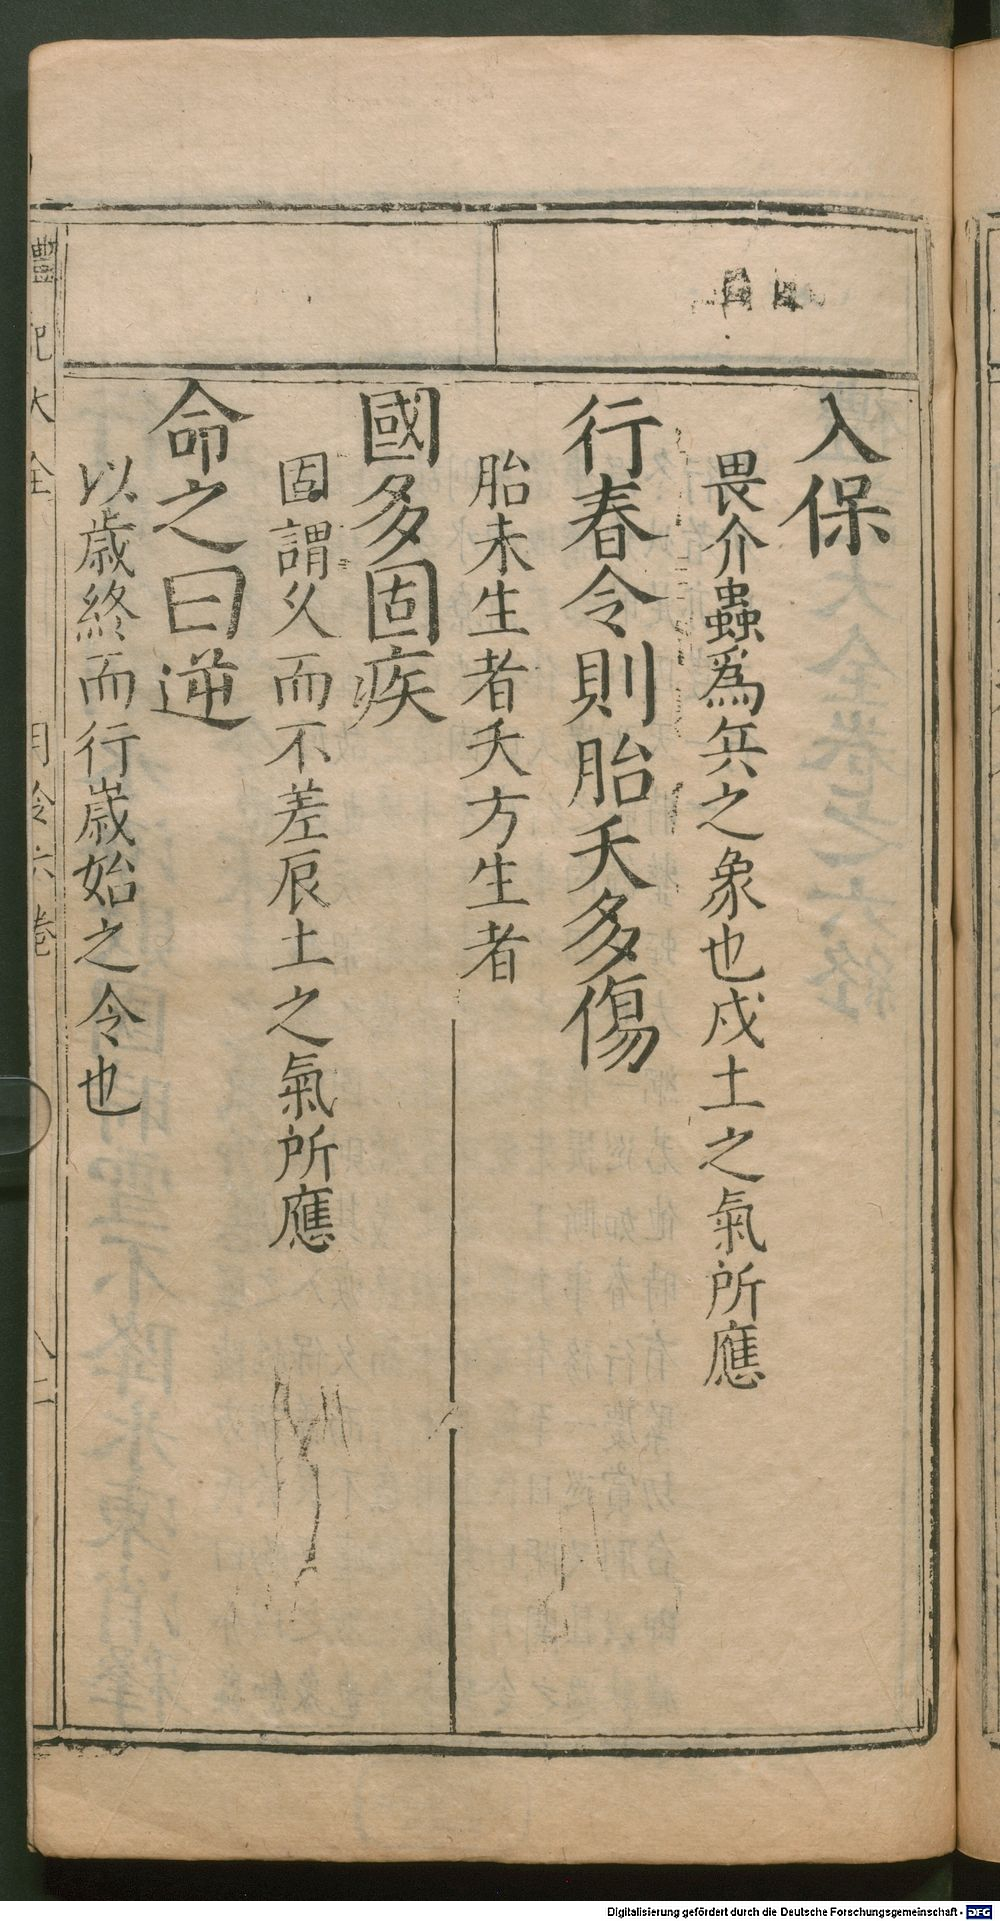 入保
畏介蟲爲兵之象也戍土之氣所應
行春令則胎夭多傷
胎未生者夭方生者
國多固疾
固謂久而不差辰土之氣所應
命之曰逆
以歲終而行歲始之令也
禮記大全
月令六卷
Digitalisierung gefördert durch die Deutsche Forschungsgemeinschaft - DFG